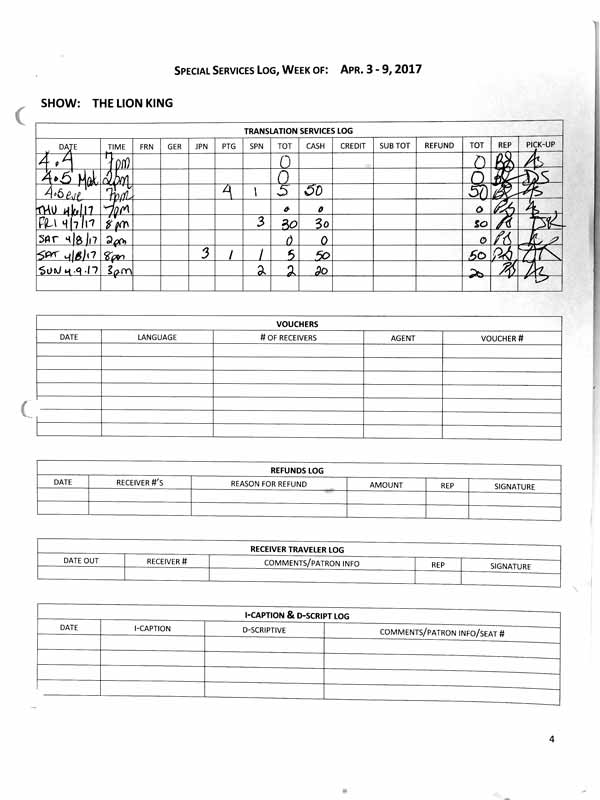 SPECIAL SERVICES LOG, WEEK OF: APR. 3 - 9, 2017
SHOW: THE LION KING
TRANSLATION SERVICES LOG
DATE TIME FRN GER JPN PTG SPN TOT CASH CREDIT SUB TOT REFUND TOT REP PICK-UP
4.4 7pm 0 0 BS
4.5 Mat 2pm 0 0 DS
4.5 eve 7pm 4 1 5 50 50
THU 4/6/17 7pm 0 0 0
FRI 4/7/17 8pm 3 30 30 30 DK
SAT 4/8/17 2pm 0 0 0
SAT 4/8/17 8pm 3 1 1 5 50 50
SUN 4.9.17 3pm 2 2 20 20
VOUCHERS
DATE LANGUAGE # OF RECEIVERS AGENT VOUCHER #
REFUNDS LOG
DATE RECEIVER #'S REASON FOR REFUND AMOUNT REP SIGNATURE
RECEIVER TRAVELER LOG
DATE OUT RECEIVER # COMMENTS/PATRON INFO REP SIGNATURE
I-CAPTION & D-SCRIPT LOG
DATE I-CAPTION D-SCRIPTIVE COMMENTS/PATRON INFO/SEAT #
4